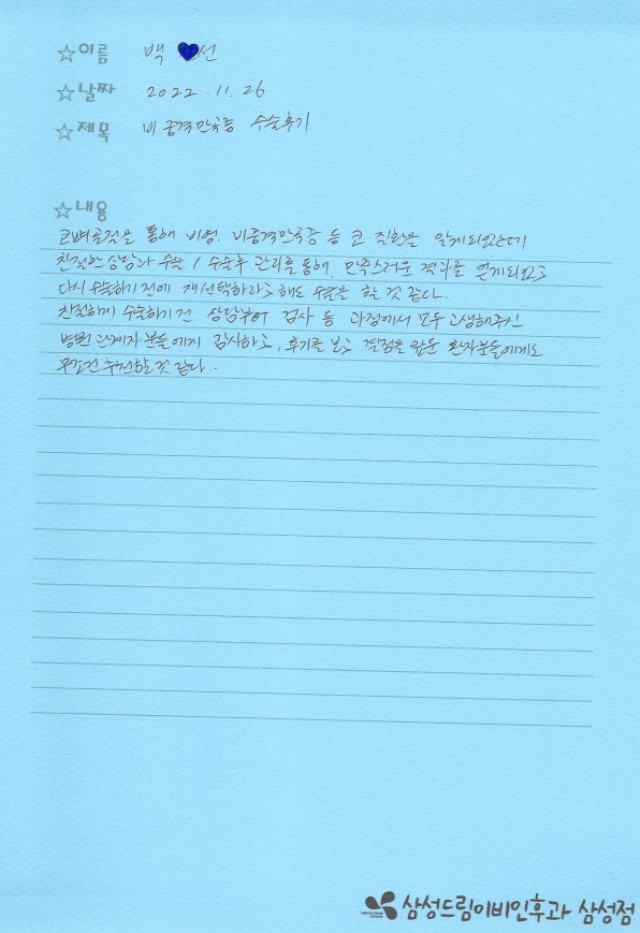 ☆이름 백 💙선
☆날짜 2022.11.26
☆제목 비중격만곡증 수술후기
☆내용
을 통해 비염, 비중격만곡증 등 코 질환을 알게되었는데
친절한 상담과 수술 / 수술후 관리를 통해, 만족스러운 결과를 얻게되었고
다시 수술하기 전에 재선택하라고 해도 수술을 할 것 같다.
친절하게 수술하기 전 상담부터 검사 등 과정에서 모두 고생해주신
병원 관계자 분들에게 감사하고, 후기를 보고 결정을 환자분들에게도
무조건 추천할 것 같다.
삼성드림이비인후과 삼성점